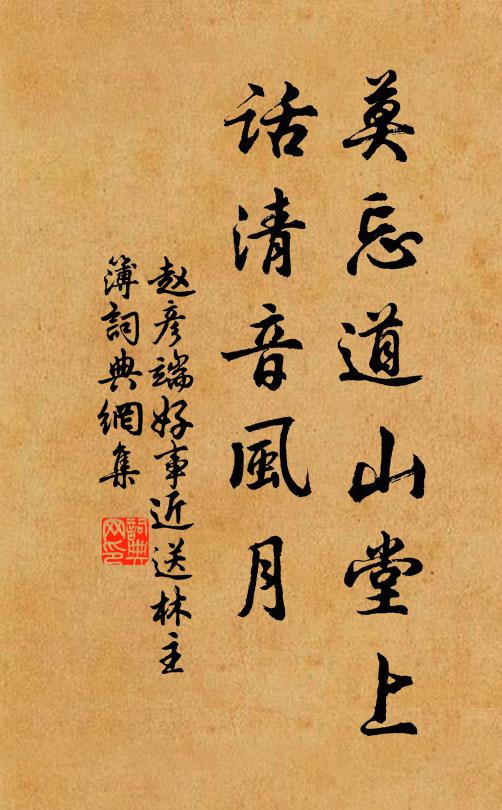 莫忘道山堂上
话清音風月
赵彦端好事近送林主
簿詞典網集
詞典网印